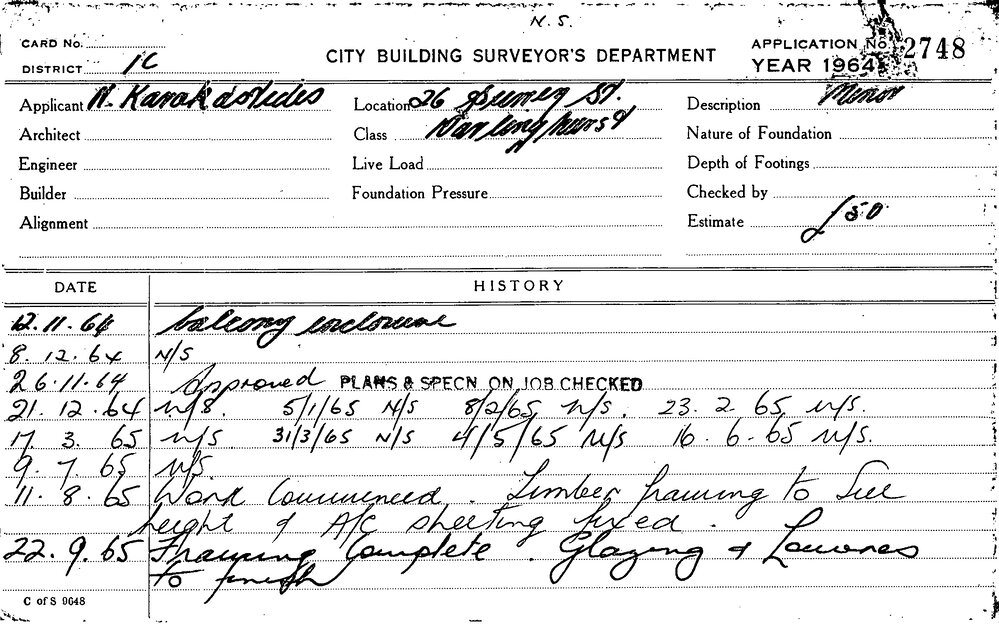 N. S.
CARD No.
DISTRICT 1C
CITY BUILDING SURVEYOR'S DEPARTMENT
APPLICATION No. 2748
YEAR 1964
Applicant N. Karakastides Location 26 Surrey St. Description Minor
Architect Class Darlinghurst Nature of Foundation
Engineer Live Load Depth of Footings
Builder Foundation Pressure Checked by
Alignment Estimate £50
DATE HISTORY
12.11.64 balcony enclosure
8.12.64 N/S
26.11.64 Approved PLANS & SPECN ON JOB CHECKED
21.12.64 n/s. 5/1/65 N/S 8/2/65 n/s. 23.2 65 n/s.
17 3. 65 n/s 31/3/65 N/S 4/5/65 N/S 16.6.65 n/s.
9.7.65 n/s.
11.8.65 Work Commenced. Timber framing to Sill
height & A/C sheeting fixed.
22.9.65 Framing Complete. Glazing & Louvres
to finish
C of S 9648